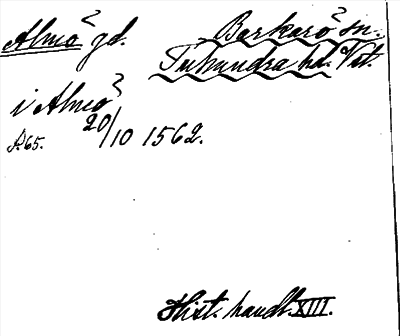 Almö gd. Barkarö sn.
Tuhundra hd. Vst.
i Almö
20/10 1562.
s. 65.
Hist. handl. XIII.